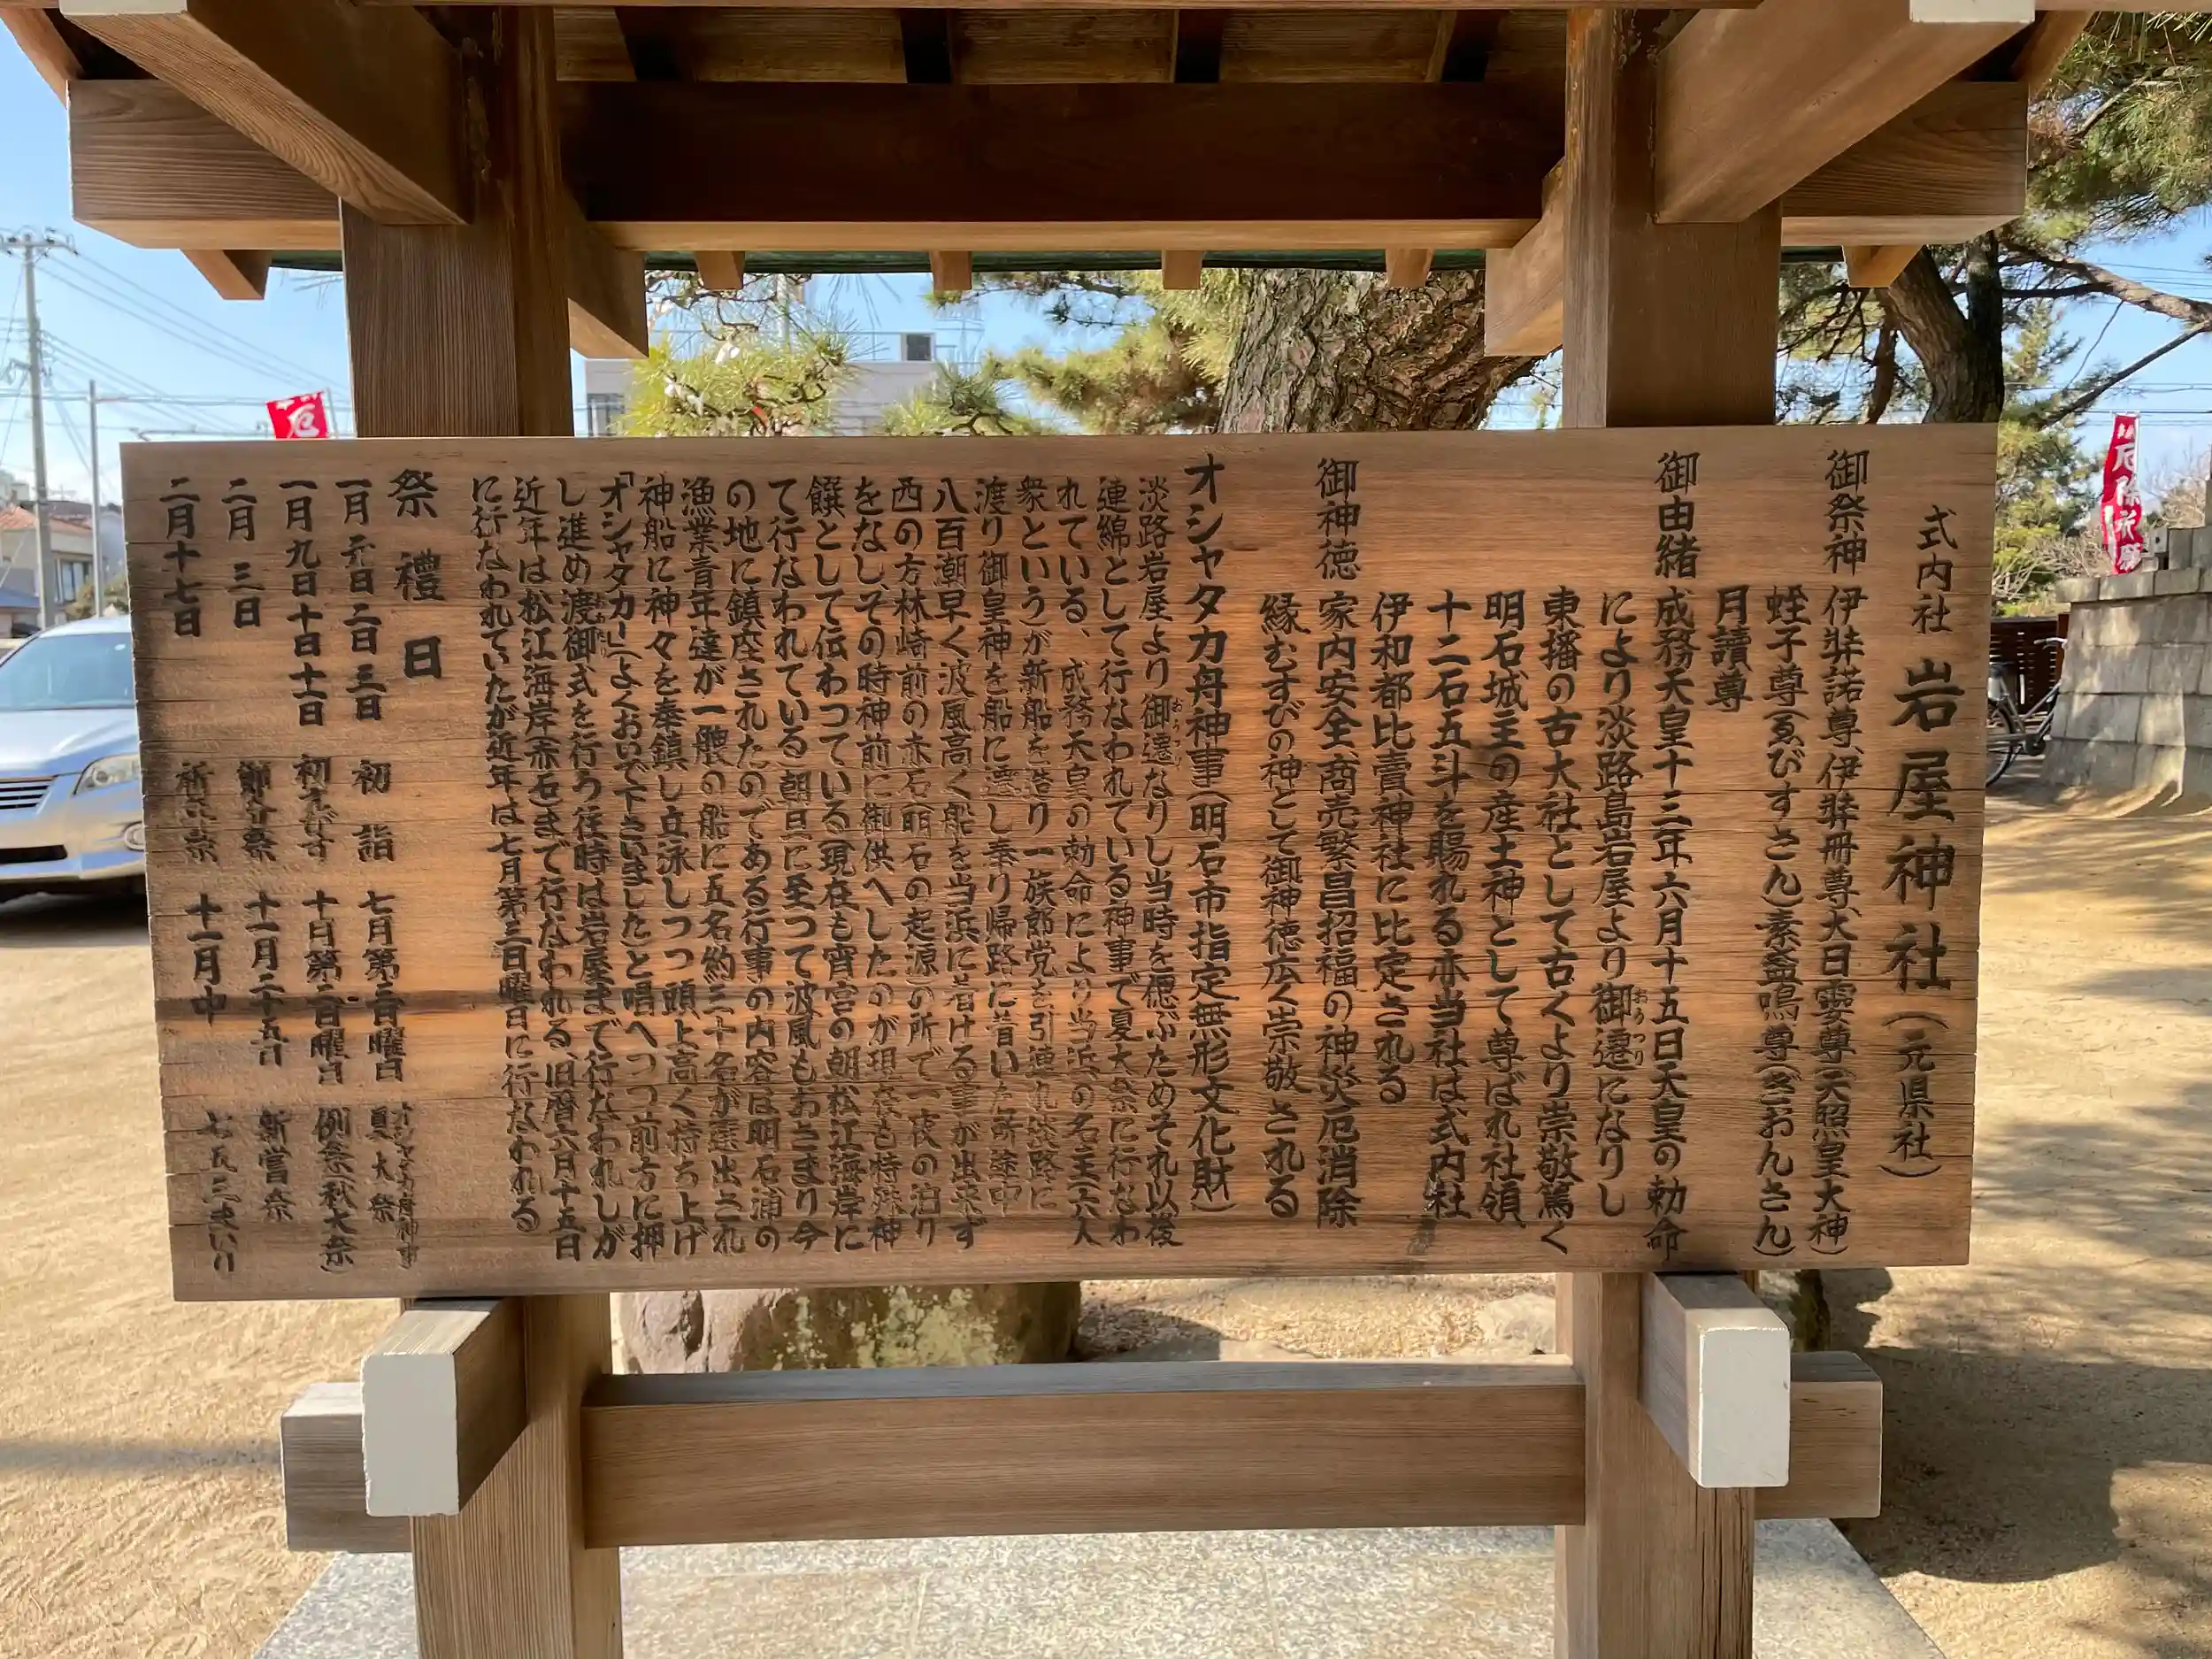 式内社 岩屋神社(元県社)
御祭神 伊弉諾尊、伊弉冊尊、大日孁尊(天照皇大神)
蛭子尊(ゑびすさん)素盞嗚尊(ぎおんさん)
月讀尊
御由緒 成務天皇十三年六月十五日天皇の勅命
により淡路島岩屋より御遷になりし
おうつり
東播の古大社として古くより崇敬篤く
明石城主の産土神として尊ばれ社領
十二石五斗を賜れる亦当社は式内社
伊和都比賣神社に比定される
御神徳 家内安全、商売繁昌招福の神災厄消除
縁むすびの神として御神徳広く崇敬される
オシャタカ舟神事(明石市指定無形文化財)
淡路岩屋より御遷なりし当時を偲ぶためそれ以後
おうつり
連綿として行なわれている神事で夏大祭に行なわ
れている、成務天皇の勅命により当浜の名主(六人
衆という)が新船を造り一族郎党を引連れ淡路に
渡り御皇神を船に遷し奉り帰路に着いた所途中
八百潮早く波風高く船を当浜に着ける事が出来ず
西の方林崎前の赤石(明石の起源)の所で一夜の泊り
をなし、その時神前に御供へしたのが現在も特殊神
饌として伝わつている(現在も宵宮の朝松江海岸に
て行なわれている)朝旦に至つて波風もおさまり今
の地に鎮座されたのである行事の内容は明石浦の
漁業青年達が一艘の船に五名約三十名が選出され
神船に神々を奉鎮し立泳しつつ頭上高く持ち上げ
「オシャタカー」(よくおいで下さいました)と唱へつつ前方に押
し進め渡御式を行う往時は岩屋まで行なわれしが
近年は松江海岸赤石まで行なわれる、旧暦六月十五日
に行なわれていたが近年は七月第三日曜日に行なわれる
祭禮日
一月元日二日三日 初詣 七月第三日曜日 オシャタカ舟神事 夏大祭
一月九日十日十一日 初ゑびす 十日第二日曜日 例祭(秋大祭)
二月三日 節分祭 十一月二十五日 新嘗祭
二月十七日 祈年祭 十一月中 七五三まいり
厄
厄除祈願